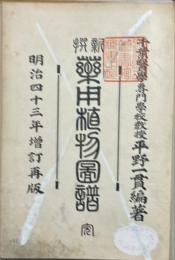 千葉醫學專門學校教授平野一貫編著
新撰
藥用植物圖譜
完
明治四十三年增訂再版